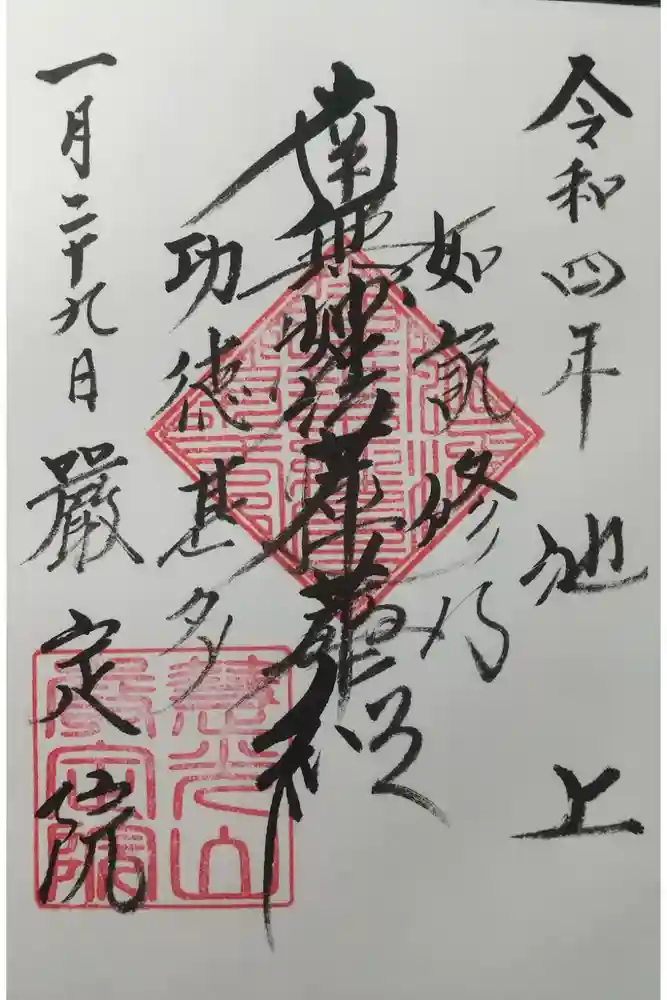 令和四年 池上
如説修行
南無妙法蓮華経
功徳甚多
一月二十九日 嚴定院
慈光山
嚴定院